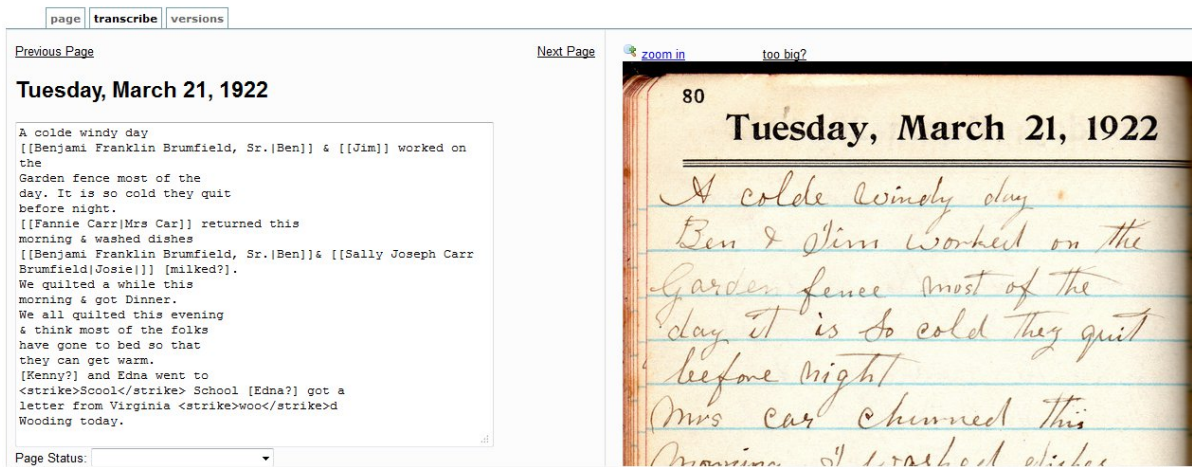 page transcribe versions
Previous Page
Next Page
Tuesday, March 21, 1922
A colde windy day
[[Benjami Franklin Brumfield, Sr.|Ben]] & [[Jim]] worked on
the
Garden fence most of the
day. It is so cold they quit
before night.
[[Fannie Carr|Mrs Car]] returned this
morning & washed dishes
[[Benjami Franklin Brumfield, Sr.|Ben]]& [[Sally Joseph Carr
Brumfield|Josie|]] [milked?].
We quilted a while this
morning & got Dinner.
We all quilted this evening
& think most of the folks
have gone to bed so that
they can get warm.
[Kenny?] and Edna went to
<strike>Scool</strike> School [Edna?] got a
letter from Virginia <strike>woo</strike>d
Wooding today.
Page Status:
zoom in
too big?
80
Tuesday, March 21, 1922
A colde windy day
Ben & Jim worked on the
Garden fence most of the
day it is so cold they quit
before night
Mrs car churned this
morning I washed dishes